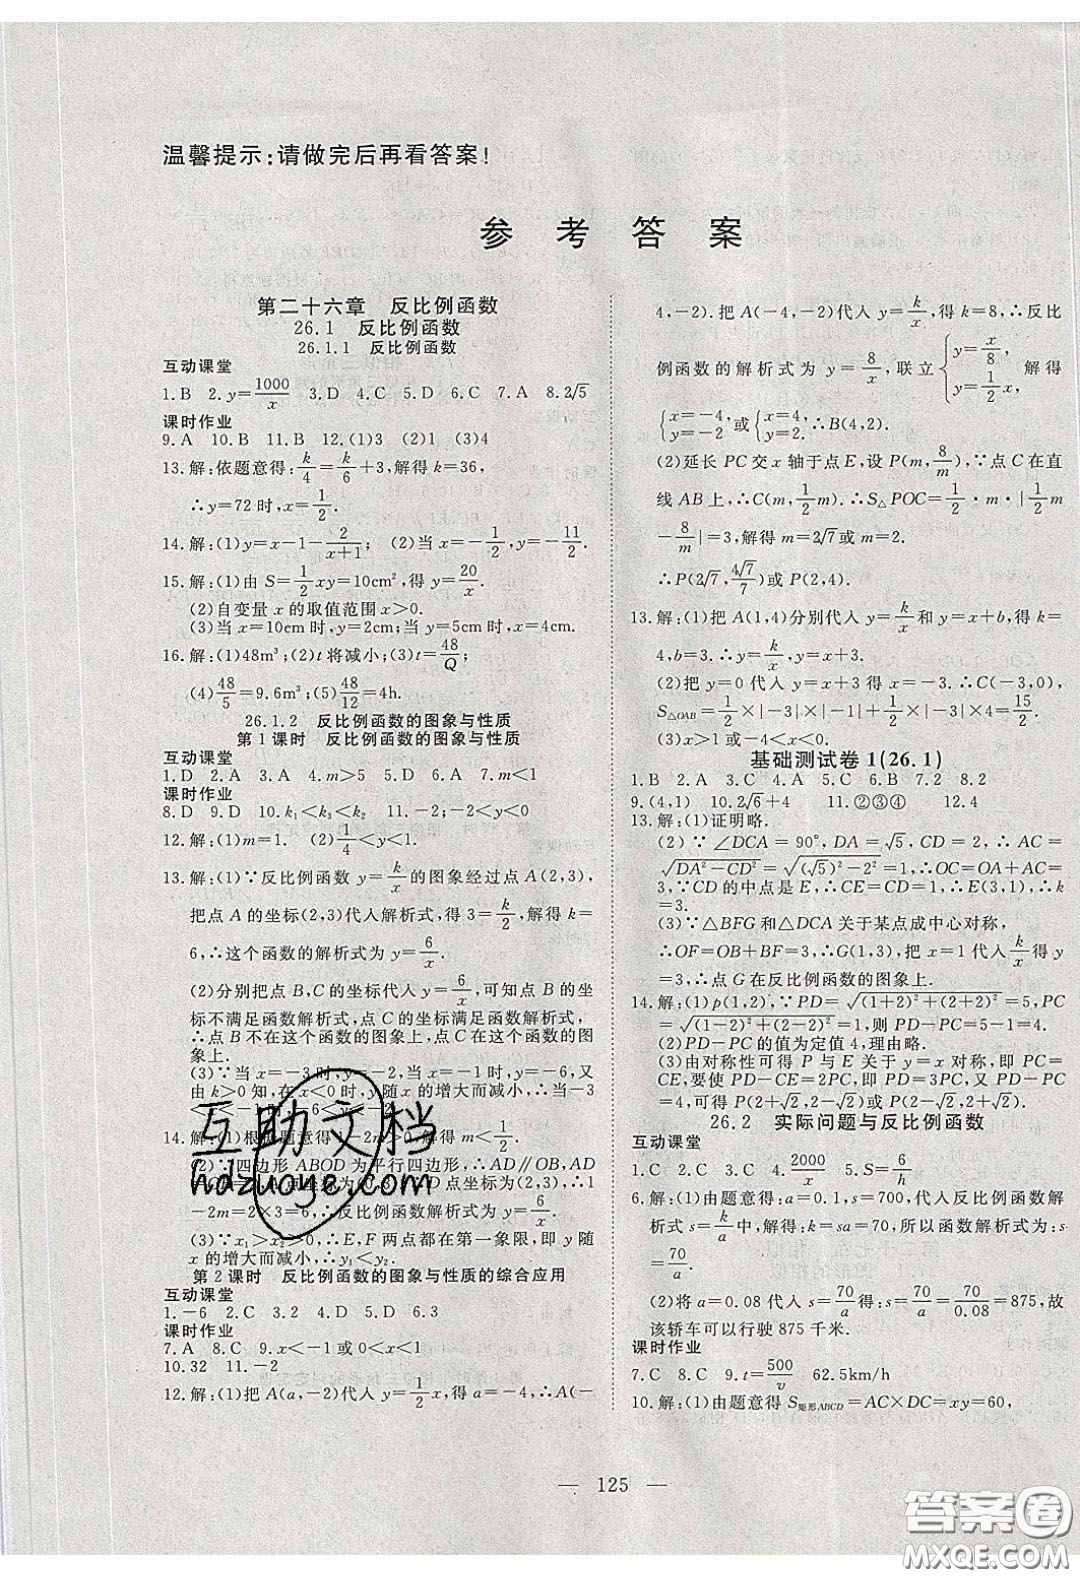 温馨提示:请做完后再看答案!
参 考 答 案
第二十六章 反比例函数
26.1 反比例函数
26.1.1 反比例函数
互动课堂
1.B 2.y=1000/x 3.D 4.D 5.C 6.C 7.A 8.2√5
课时作业
9.A 10.B 11.B 12.(1)3 (2)1 (3)4
13.解:依题意得:k/4=k/6+3,解得k=36,
∴y=72时,x=1/2.
14.解:(1)y=x-1-2/(x+1); (2)当x=-1/2,y=-11/2.
15.解:(1)由S=1/2xy=10cm²,得y=20/x.
(2)自变量x的取值范围x>0.
(3)当x=10cm时,y=2cm;当y=5cm时,x=4cm.
16.解:(1)48m³;(2)t将减小;(3)t=48/Q;
(4)48/5=9.6m³;(5)48/12=4h.
26.1.2 反比例函数的图象与性质
第1课时 反比例函数的图象与性质
互动课堂
1.D 2.D 3.A 4.m>5 5.D 6.A 7.C
课时作业
8.D 9.D 10.k₁<k₃<k₂ 11.D
12.解:(1)m=1. (2)1/4<y<1.
13.解:(1)∵反比例函数y=k/x的图象经过点A(2,3),
把点A的坐标(2,3)代入解析式,得3=k/2,解得k=
6,∴这个函数的解析式为y=6/x.
(2)分别把点B,C的坐标代入y=6/x,可知点B的坐
标不满足函数解析式,点C的坐标满足函数解析式,
∴点B不在这个函数的图象上,点C在这个函数的图
象上.
(3)∵当x=-3时,y=-2,当x=-1时,y=-6,
又由k>0知,在x<0时,y随x的增大而减小,∴当
14.解:(1)根据题意得1-2m>0,解得m<1/2
(2)∵四边形ABOD为平行四边形,∴AD∥OB,AD
=OB=2,A点坐标为(0,3),∴D点坐标为(2,3),∴
1-2m=2×3=6,∴反比例函数解析式为y=6/x.
(3)∵x₁>x₂>0,∴E,F两点都在第一象限,即y随
x的增大而减小,∴y₁<y₂.
第2课时 反比例函数的图象与性质的综合应用
互动课堂
1.-6 2.C 3.2 4.D 5.D 6.3
课时作业
7.A 8.C 9.x<-1或0<x<1
10.32 11.-2
12.解:(1)把A(a,-2)代入y=1/2x,得a=-4,∴A(-
4,-2).把A(-4,-2)代入y=k/x,得k=8,∴反比
例函数的解析式为y=8/x,联立{y=x/8, y=1/2x, 解得
{x=-4, y=-2或{x=4, y=2.∴B(4,2).
(2)延长PC交x轴于点E,设P(m,8/m),∵点C在直
线AB上,∴C(m,1/2m).∴S△POC=1/2·m·|1/2m
-8/m|=3,解得m=2√7或m=2.
∴P(2√7,4√7/7)或P(2,4).
13.解:(1)把A(1,4)分别代入y=k/x和y=x+b,得k=
4,b=3.∴y=k/x,y=x+3.
(2)把y=0代入y=x+3得x=-3.∴C(-3,0)
S△OAB=1/2×|-3|×|-1|+1/2×|-3|×4=15/2.
(3)x>1或-4<x<0.
基础测试卷1(26.1)
1.B 2.A 3.C 4.C 5.A 6.B 7.2 8.2
9.(4,1) 10.2√6+4 11.②③④ 12.4
13.解:(1)证明略.
(2)∵∠DCA=90°,DA=√5,CD=2,∴AC=
√(DA²-CD²)=√((√5)²-2²)=1,∴OC=OA+AC=
3,∵CD的中点是E,∴CE=CD=1,∴E(3,1),∴k
=3.
(3)∵△BFG和△DCA关于某点成中心对称,
∴OF=OB+BF=3,∴G(1,3),把x=1代入k/x得y=
3,∴点G在反比例函数的图象上.
14.解:(1)p(1,2),∵PD=√((1+2)²+(2+2)²)=5,PC
=√((1-2)²+(2-2)²)=1,则PD-PC=5-1=4.
(2)PD-PC的值为定值4,理由略.
(3)由对称性可得P与E关于y=x对称,即PC=
CE,要使PD-CE=2PC,即PD=3PC,又PD-PC=
4,可得P(2+√2,2-√2)或P(2-√2,2+√2).
26.2 实际问题与反比例函数
互动课堂
1.C 2.C 3.C 4.2000/x 5.S=6/h
6.解:(1)由题意得:a=0.1,s=700,代入反比例函数解
析式s=k/a中,解得:k=sa=70,所以函数解析式为:s
=70/a.
(2)将a=0.08代入s=70/a得:s=70/a=70/0.08=875,故
该轿车可以行驶875千米.
课时作业
7.C 8.C 9.t=500/v 62.5km/h
10.解:(1)由题意得S矩形ABCD=AC×DC=xy=60,
— 125 —
互助文档
hdzuoye.com
答案圈
MXQE.COM